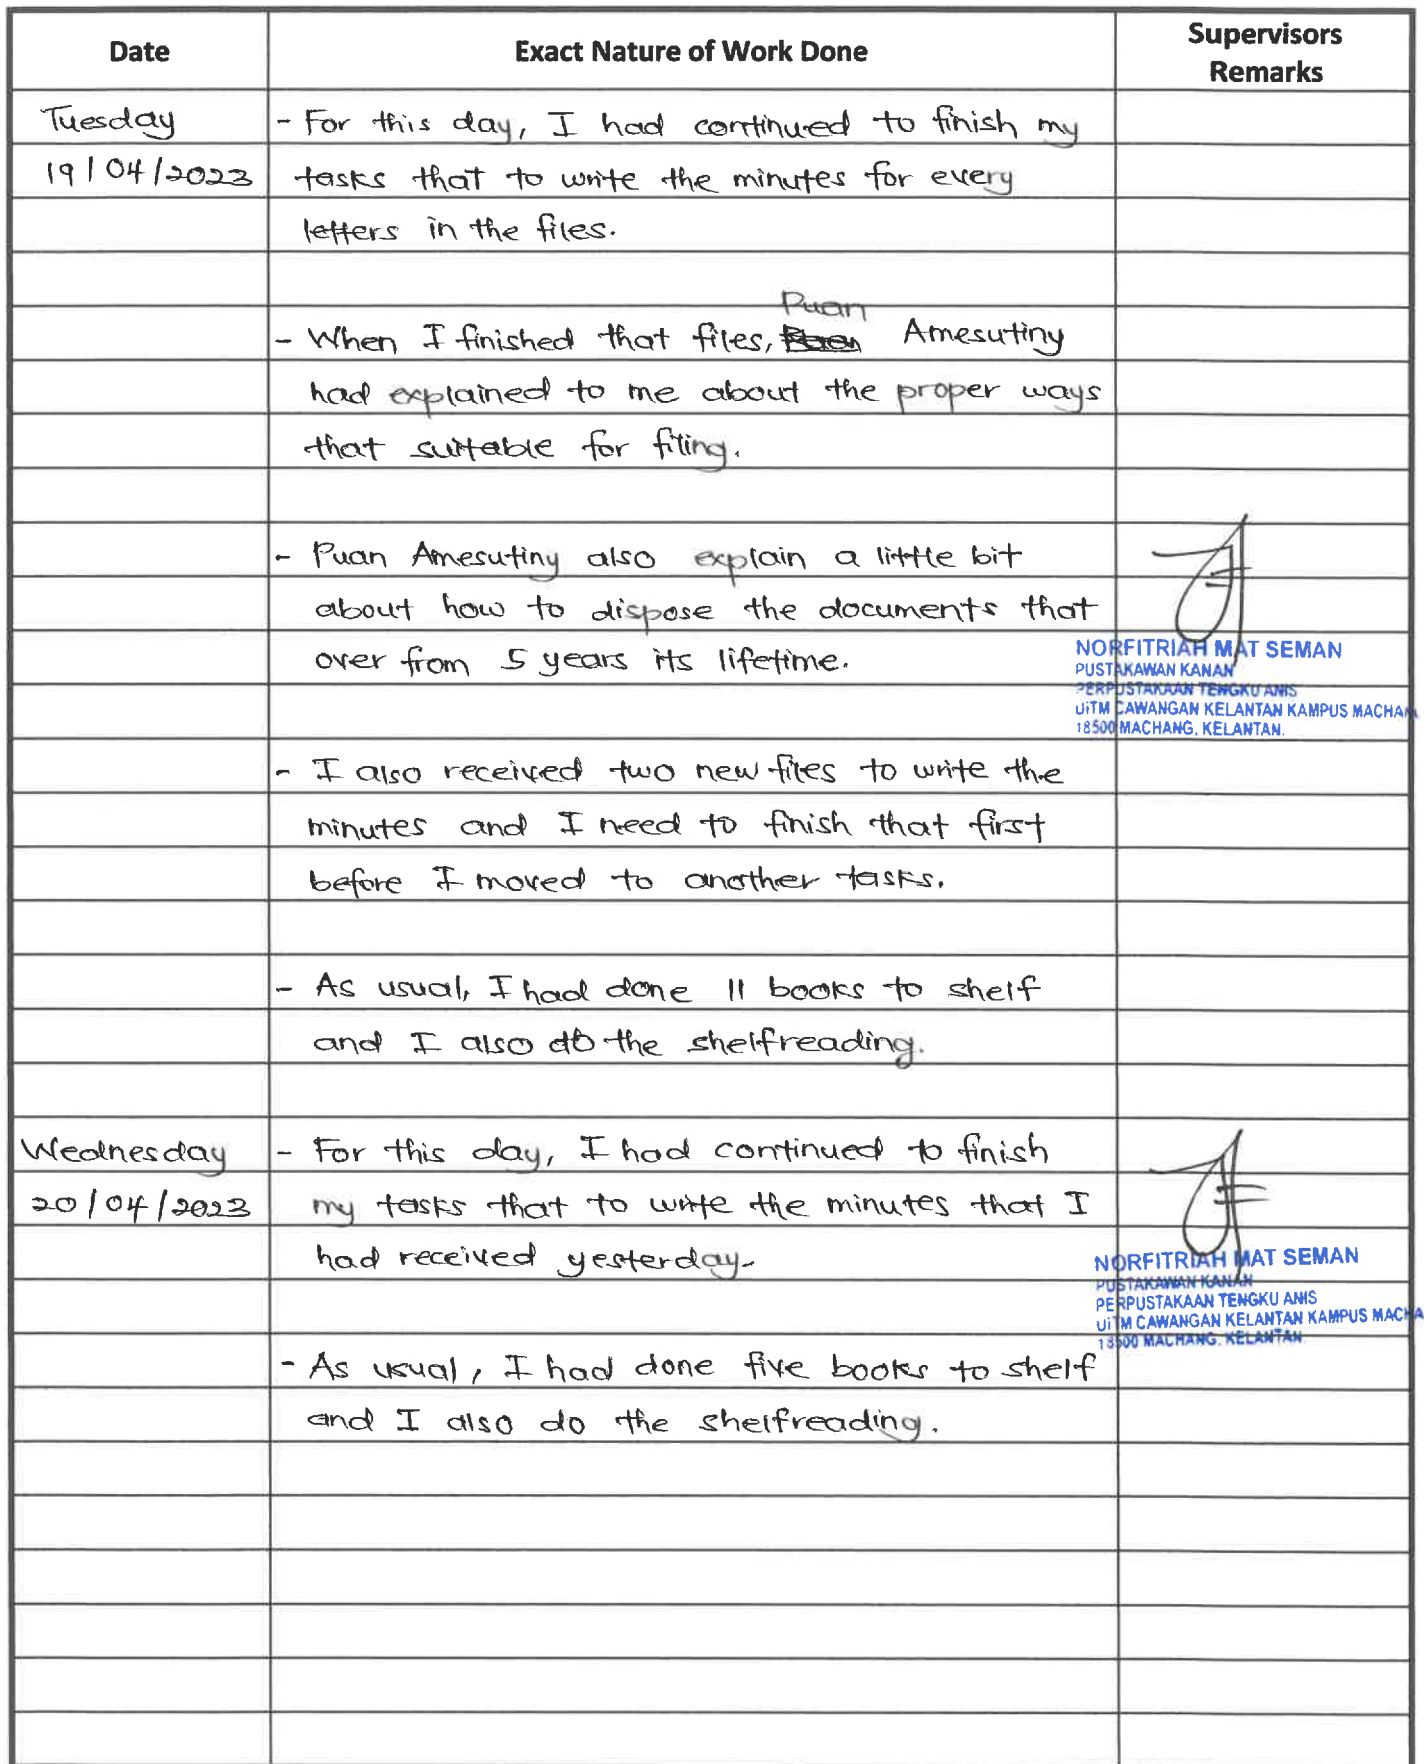 Date Exact Nature of Work Done Supervisors Remarks
Tuesday - For this day, I had continued to finish my
19/04/2023 tasks that to write the minutes for every
letters in the files.
Puan
- When I finished that files, Amesutiny
had explained to me about the proper ways
that suitable for filing.
- Puan Amesutiny also explain a little bit
about how to dispose the documents that
over from 5 years its lifetime.
NORFITRIAH MAT SEMAN
PUSTAKAWAN KANAN
PERPUSTAKAAN TENGKU ANIS
UiTM CAWANGAN KELANTAN KAMPUS MACHAN
18500 MACHANG, KELANTAN.
- I also received two new files to write the
minutes and I need to finish that first
before I moved to another tasks.
- As usual, I had done 11 books to shelf
and I also do the shelfreading.
Wednesday - For this day, I had continued to finish
20/04/2023 my tasks that to write the minutes that I
had received yesterday.
NORFITRIAH MAT SEMAN
PUSTAKAWAN KANAN
PERPUSTAKAAN TENGKU ANIS
UiTM CAWANGAN KELANTAN KAMPUS MACHA
18500 MACHANG, KELANTAN
- As usual, I had done five books to shelf
and I also do the shelfreading.